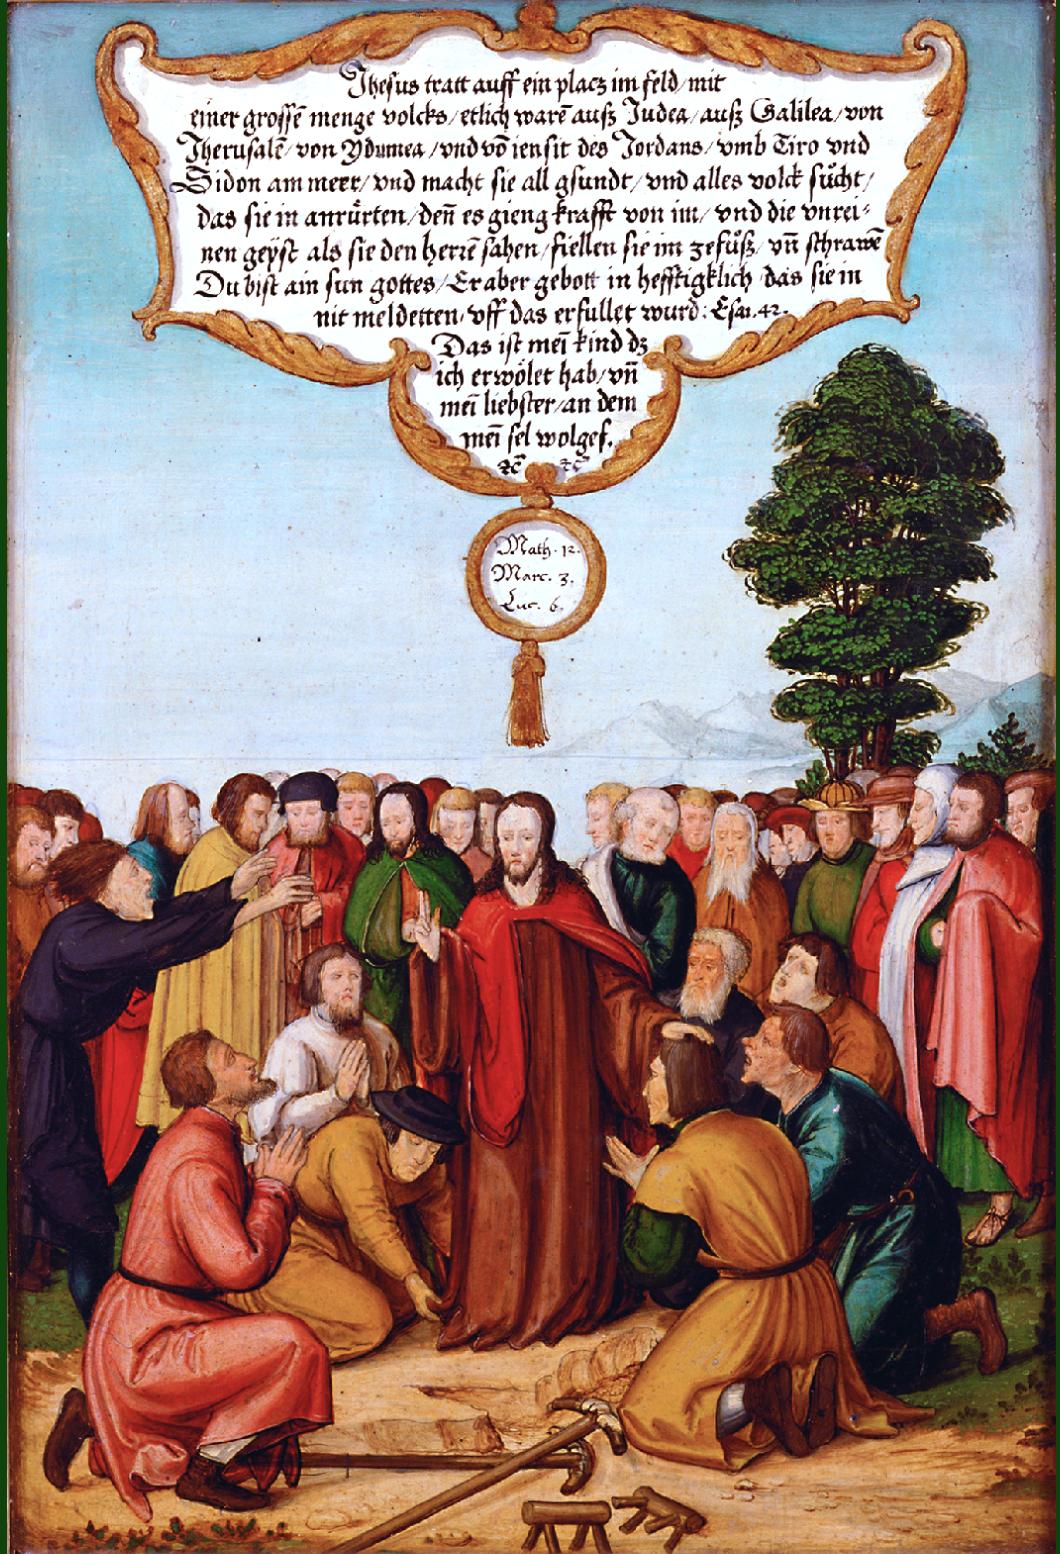 Jhesus tratt auff ein placz im feld/ mit
einer grossē menge volcks/ etlich warē auß Judea/ auß Galilea/ von
Jherusalē/ von Ydumea/ vnd võ iensit des Jordans/ vmb Tiro vnd
Sidon am meer/ vnd macht sie all gsundt/ vnd alles volck sůcht/
das sie in anrůrten/ deñ es gieng krafft von im/ vnd die vnrei-
nen geÿst als sie den herrē sahen/ fiellen sie im zefůß/ vñ schrawē
Du bist ain sun gottes/ Er aber gebott in hefftigklich das sie in
nit meldetten/ vff das erfullet wurd: Esai. 42.
Das ist meī kind dz
ich erwölet hab/ vñ
meī liebster/ an dem
meī sel wolgef.
ꝛc̄ ꝛc̄
Math. 12.
Marc. 3.
Luc. 6.